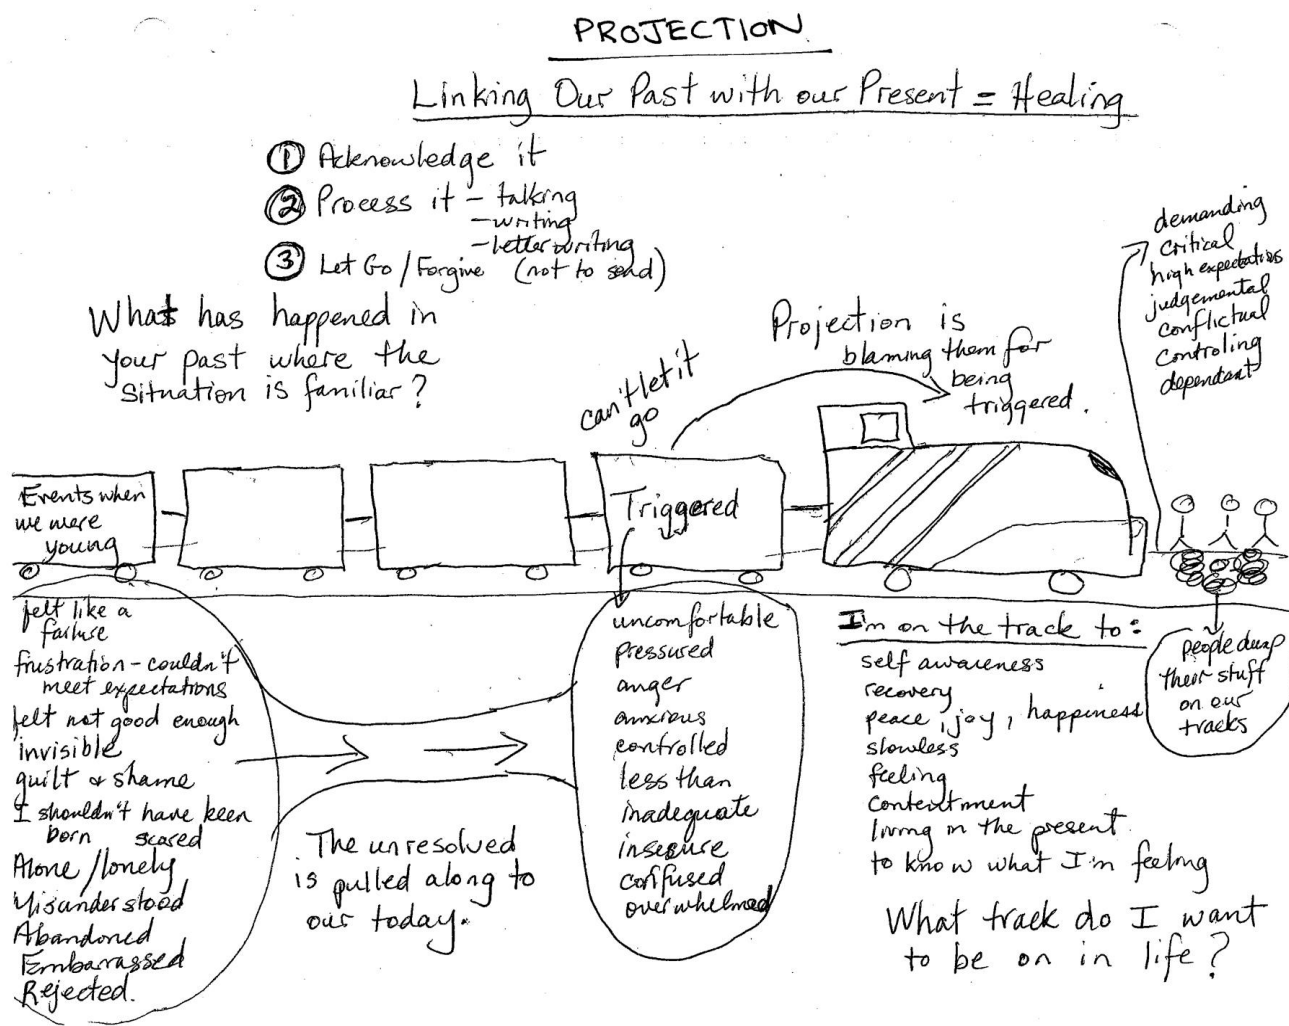 PROJECTION
Linking Our Past with our Present = Healing
① Acknowledge it
② Process it - talking
- writing
- letter writing
③ Let Go / Forgive (not to send)
What has happened in
your past where the
situation is familiar?
can't let it
go
Projection is
blaming them for
being
triggered.
demanding
critical
high expectations
judgemental
conflictual
controling
dependant
Events when
we were
young
Triggered
felt like a
failure
frustration - couldn't
meet expectations
felt not good enough
invisible
guilt & shame
I shouldn't have been
born scared
Alone / lonely
Misunderstood
Abandoned
Embarrassed
Rejected.
The unresolved
is pulled along to
our today.
uncomfortable
pressured
anger
anxious
controlled
less than
inadequate
insecure
confused
overwhelmed
I'm on the track to:
self awareness
recovery
peace, joy, happiness
slowless
feeling
contentment
living in the present
to know what I'm feeling
people dump
their stuff
on our
tracks
What track do I want
to be on in life?